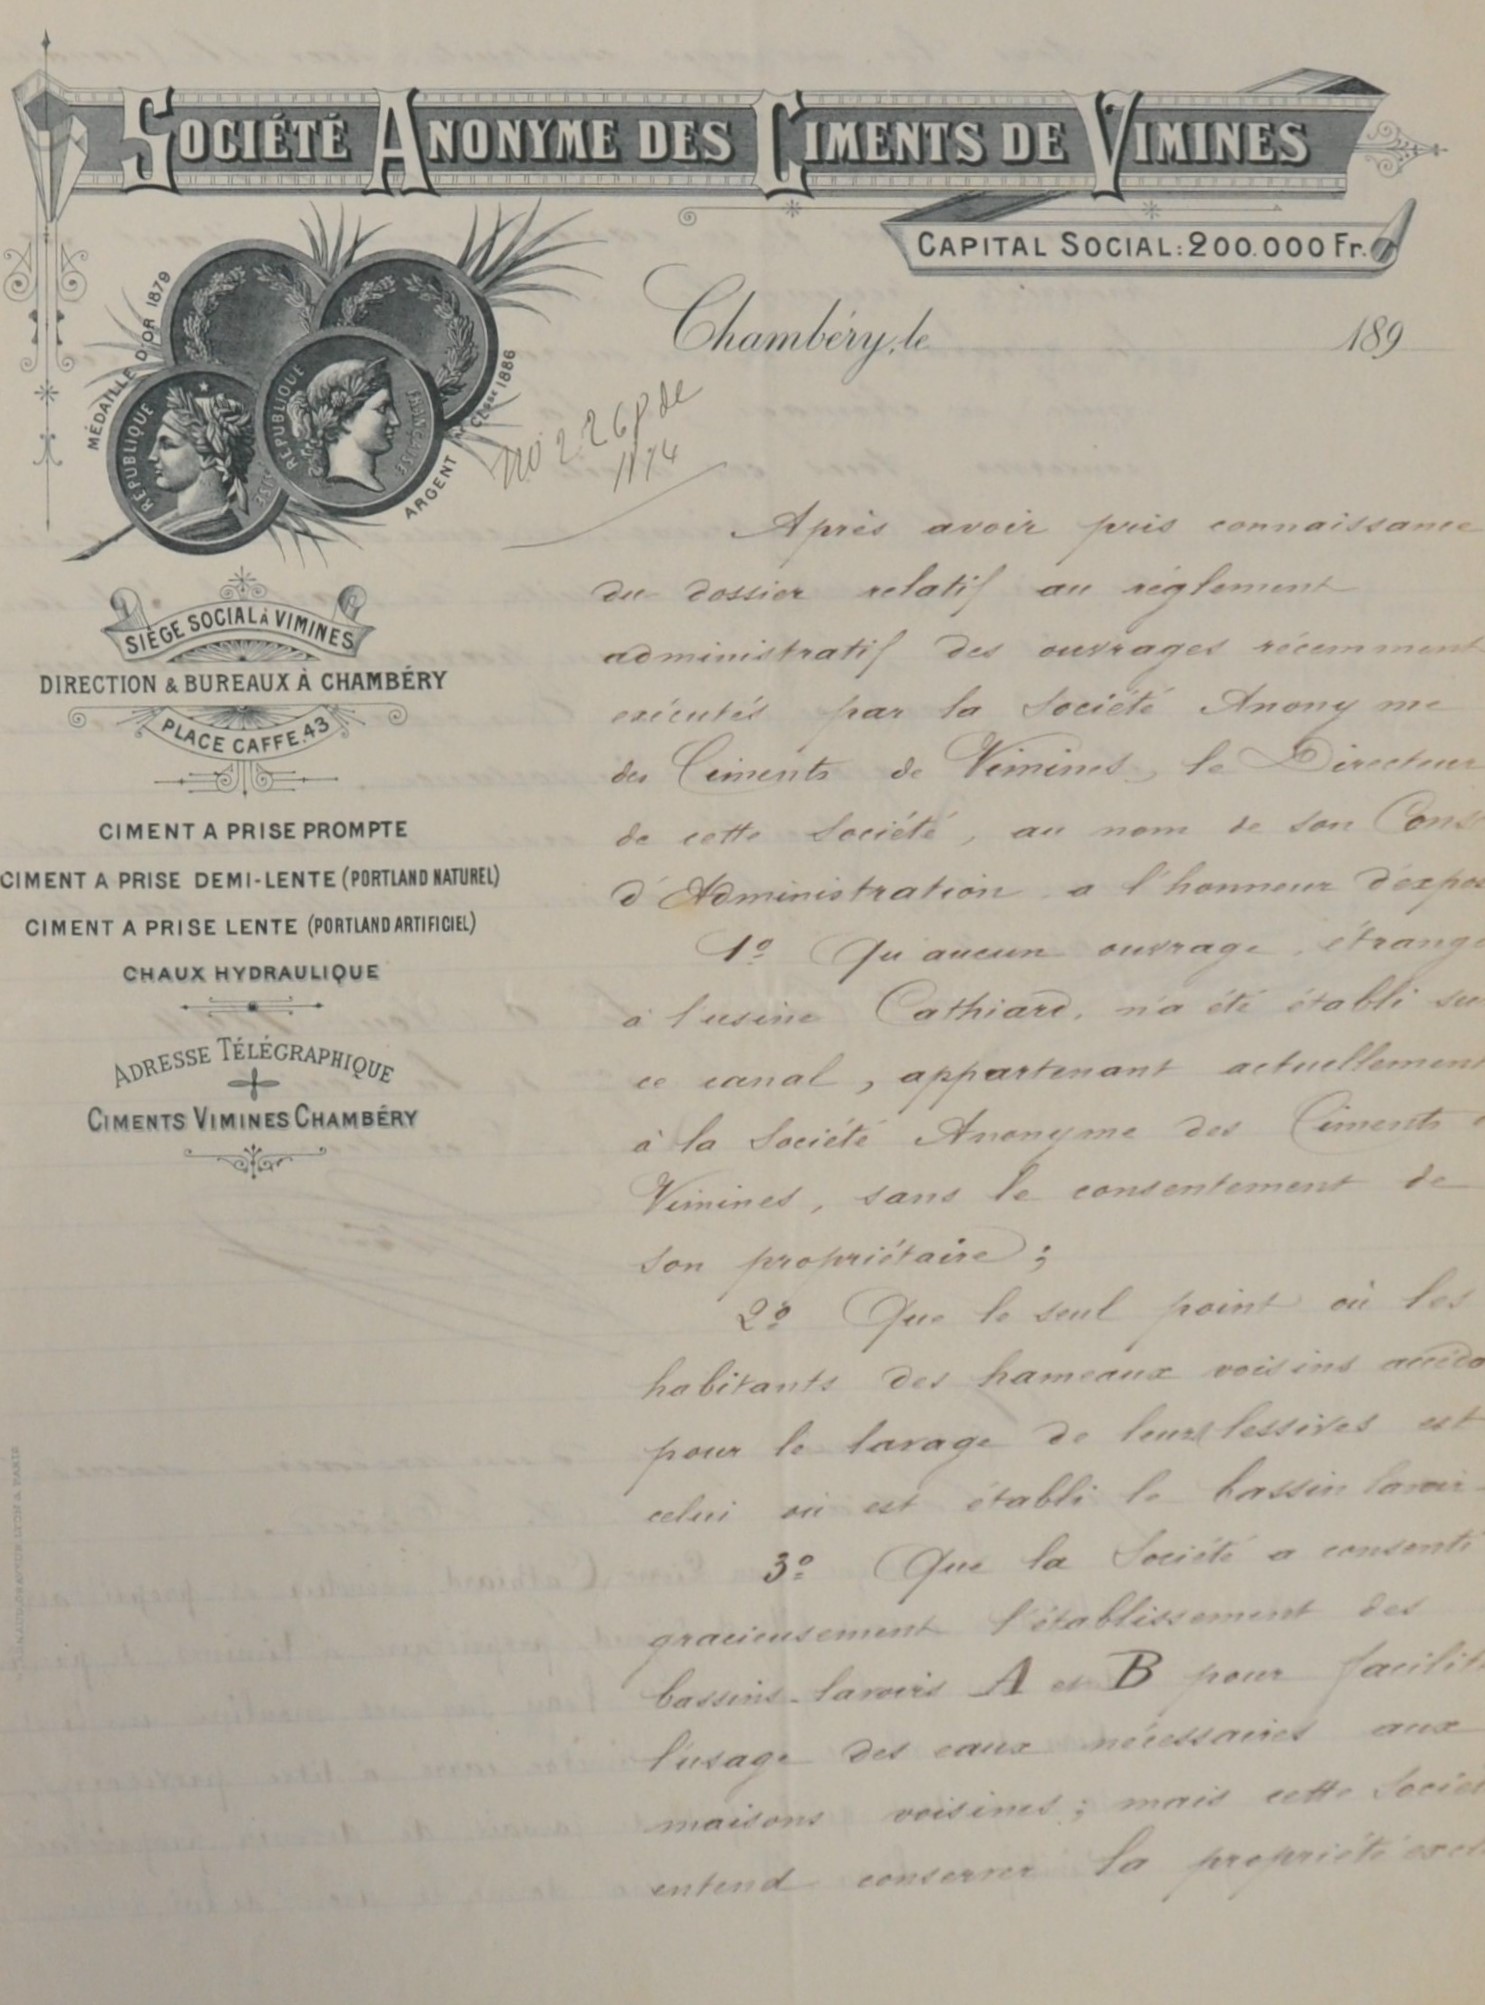 SOCIÉTÉ ANONYME DES CIMENTS DE VIMINES
CAPITAL SOCIAL: 200.000 Fr.
MÉDAILLE D'OR 1879
RÉPUBLIQUE
RÉPUBLIQUE FRANÇAISE
ARGENT 1886
Chambéry, le 189
No 2268 de
1174
SIÈGE SOCIAL À VIMINES
DIRECTION & BUREAUX À CHAMBÉRY
PLACE CAFFE. 43
CIMENT A PRISE PROMPTE
CIMENT A PRISE DEMI-LENTE (PORTLAND NATUREL)
CIMENT A PRISE LENTE (PORTLAND ARTIFICIEL)
CHAUX HYDRAULIQUE
ADRESSE TÉLÉGRAPHIQUE
CIMENTS VIMINES CHAMBÉRY
Après avoir pris connaissance
du dossier relatif au réglement
administratif des ouvrages récemment
exécutés par la Société Anonyme
des Ciments de Vimines, le Directeur
de cette Société, au nom de son Conse
d'Administration a l'honneur d'expos
1º Qu'aucun ouvrage, étrange
à l'usine Cathiard, n'a été établi su
ce canal, appartenant actuellement
à la Société Anonyme des Ciments
Vimines, sans le consentement de
son propriétaire;
2º Que le seul point où les
habitants des hameaux voisins accèdo
pour le lavage de leurs lessives est
celui où est établi le bassin lavoir
3º Que la Société a consenti
gracieusement l'établissement des
bassins-lavoirs A et B pour facilit
l'usage des eaux nécessaires aux
maisons voisines; mais cette Socié
entend conserver la propriété excl